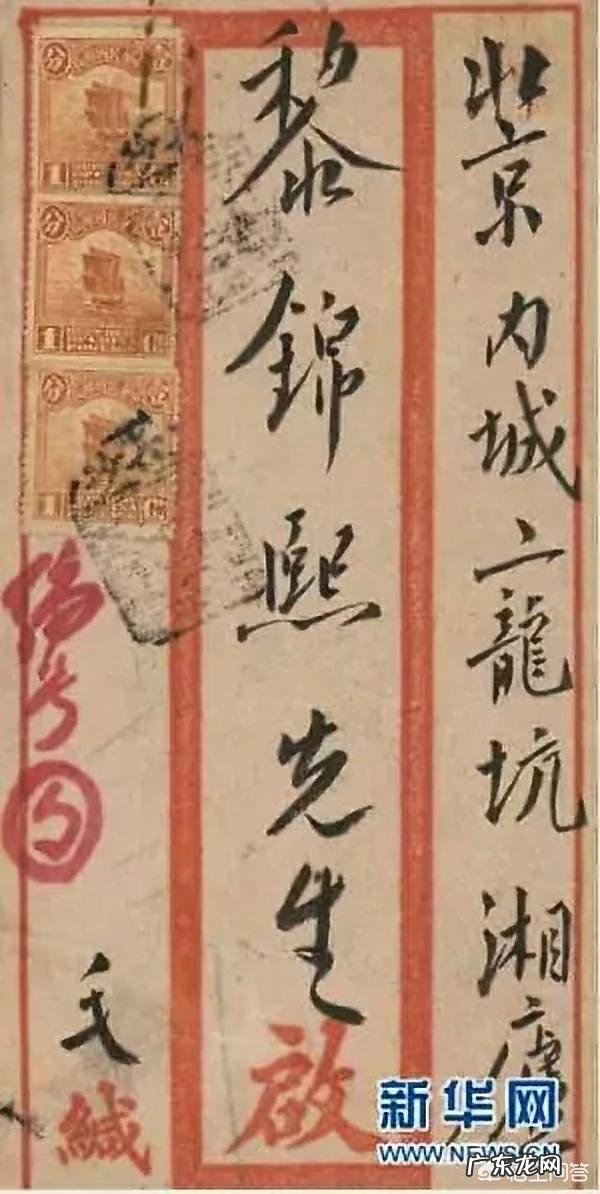 北京内城二龍坑湘
黎錦熙先生啟
毛緘
分
壹
分
壹
分
壹
新华网
WWW.NEWS.CN
广东龙网